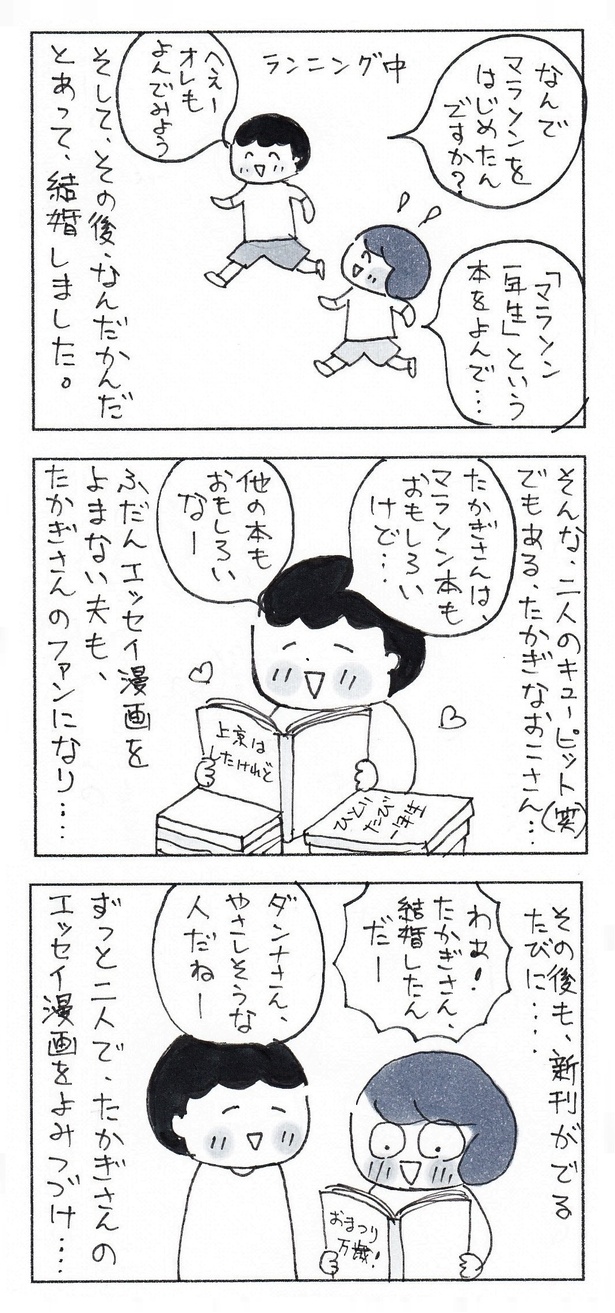 なんで
マラソンを
はじめたん
ですか?
「マラソン
一年生」という
本をよんで…
ランニング中
へぇー
オレも
よんでみよう
そして、その後、なんだかんだ
とあって、結婚しました。
そんな、二人のキューピット(笑)
でもある、たかぎなおこさん…
たかぎさんは、
マラソン本も
おもしろい
けど…
他の本も
おもしろい
なー
上京は
したけれど
ひとり
たび
一年生
ふだんエッセイ漫画を
よまない夫も、
たかぎさんのファンになり…
その後も、新刊がでる
たびに…
わぁ!
たかぎさん、
結婚したん
だー
ダンナさん、
やさしそうな
人だねー
おまつり
万歳!
ずっと二人で、たかぎさんの
エッセイ漫画をよみつづけ…